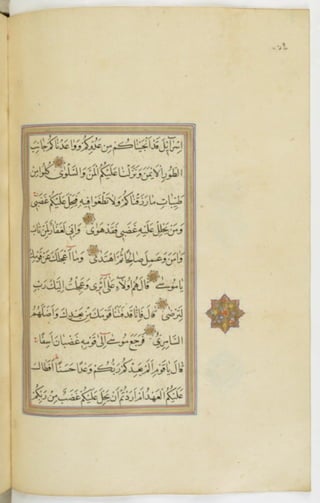 اسرائيل قد انجيناكم من عدوكم وواعدناكم جانب
الطور الايمن ونزلنا عليكم المن والسلوى كلوا من
طيبات ما رزقناكم ولا تطغوا فيه فيحل عليكم غضبي
ومن يحلل عليه غضبي فقد هوى واني لغفار لمن تاب
وآمن وعمل صالحا ثم اهتدى وما اعجلك عن قومك
يا موسى قال هم اولاء على اثري وعجلت اليك رب
لترضى قال فانا قد فتنا قومك من بعدك واضلهم
السامري فرجع موسى الى قومه غضبان اسفا
قال يا قوم الم يعدكم ربكم وعدا حسنا افطال
عليكم العهد ام اردتم ان يحل عليكم غضب من ربكم